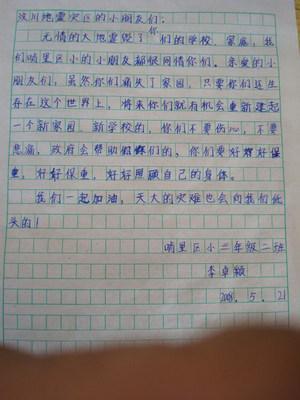 汶川地震灾区的小朋友们：
无情的大地震毁了你们的学校、家庭，我
们哨里区小的小朋友都很同情你们。亲爱的小
朋友们，虽然你们痛失了家园，只要你们还生
存在这个世界上，将来你们就有机会重新建起
一个新家园、新学校的，你们不要伤心，不要
悲痛，政府会帮助你们的，你们要好好保
重，好好保重，好好照顾自己的身体。
我们一起加油，天大的灾难也会向我们低
头的！
哨里区小三年级二班
李卓颖
2008．5．21